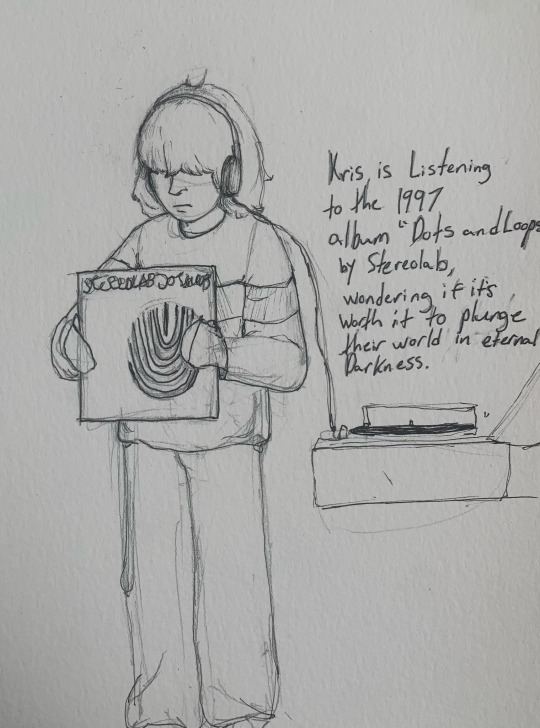 Kris, is Listening
to the 1997
album "Dots and Loops
by Stereolab,
wondering if it's
worth it to plunge
their world in eternal
Darkness.